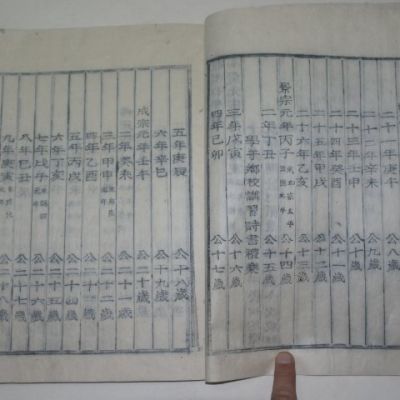 二十一年庚午 公八歲
二十二年辛未 公九歲
二十三年壬申 公十歲
二十四年癸酉 公十一歲
二十五年甲戌 公十二歲
二十六年乙亥 公十三歲
景宗元年丙子 公十四歲
二年丁丑 公十五歲
學于鄉校講習詩書禮樂
三年戊寅 公十六歲
四年己卯 公十七歲
五年庚辰 公十八歲
六年辛巳 公十九歲
成宗元年壬午 公二十歲
二年癸未 公二十一歲
三年甲申 公二十二歲
四年乙酉 公二十三歲
五年丙戌 公二十四歲
六年丁亥 公二十五歲
七年戊子 公二十六歲
八年己丑 公二十七歲
九年庚寅 公二十八歲